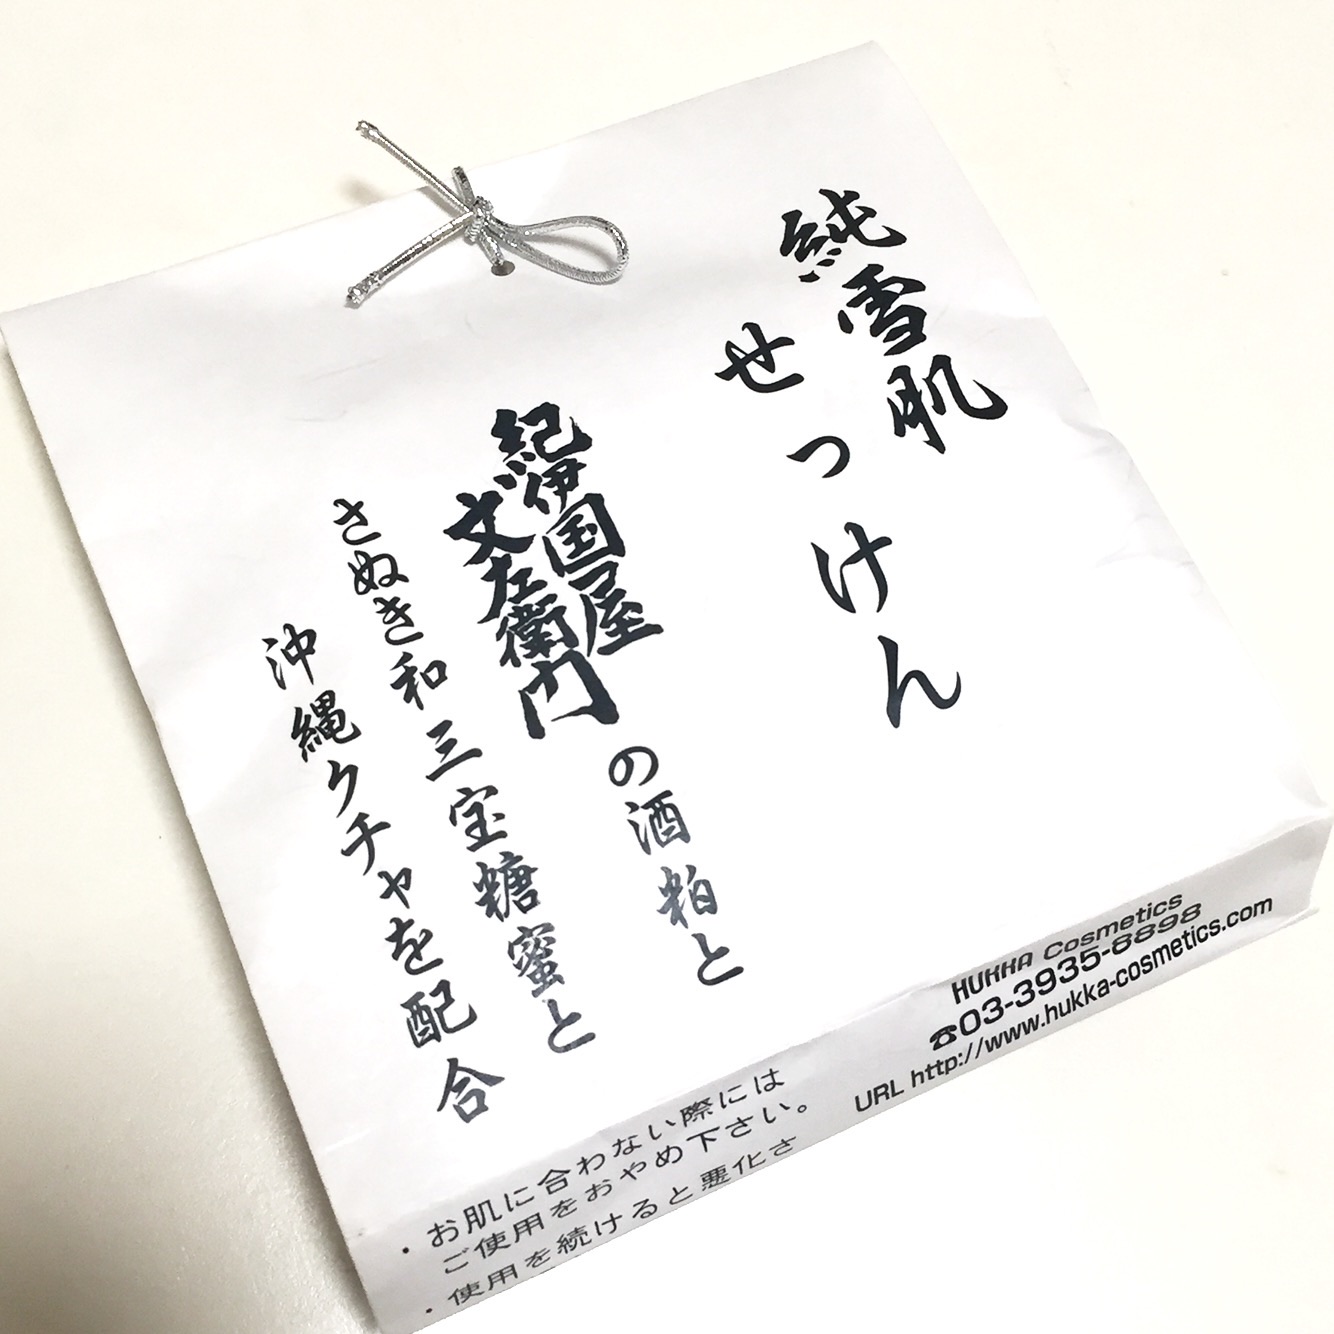 純雪肌
せっけん
紀伊国屋
文左衛門
の酒粕と
さぬき和三宝糖蜜と
沖縄クチャを配合
・お肌に合わない際には
ご使用をおやめ下さい。
・使用を続けると悪化さ
HUKKA Cosmetics
☎03-3935-8898
URL http://www.hukka-cosmetics.com